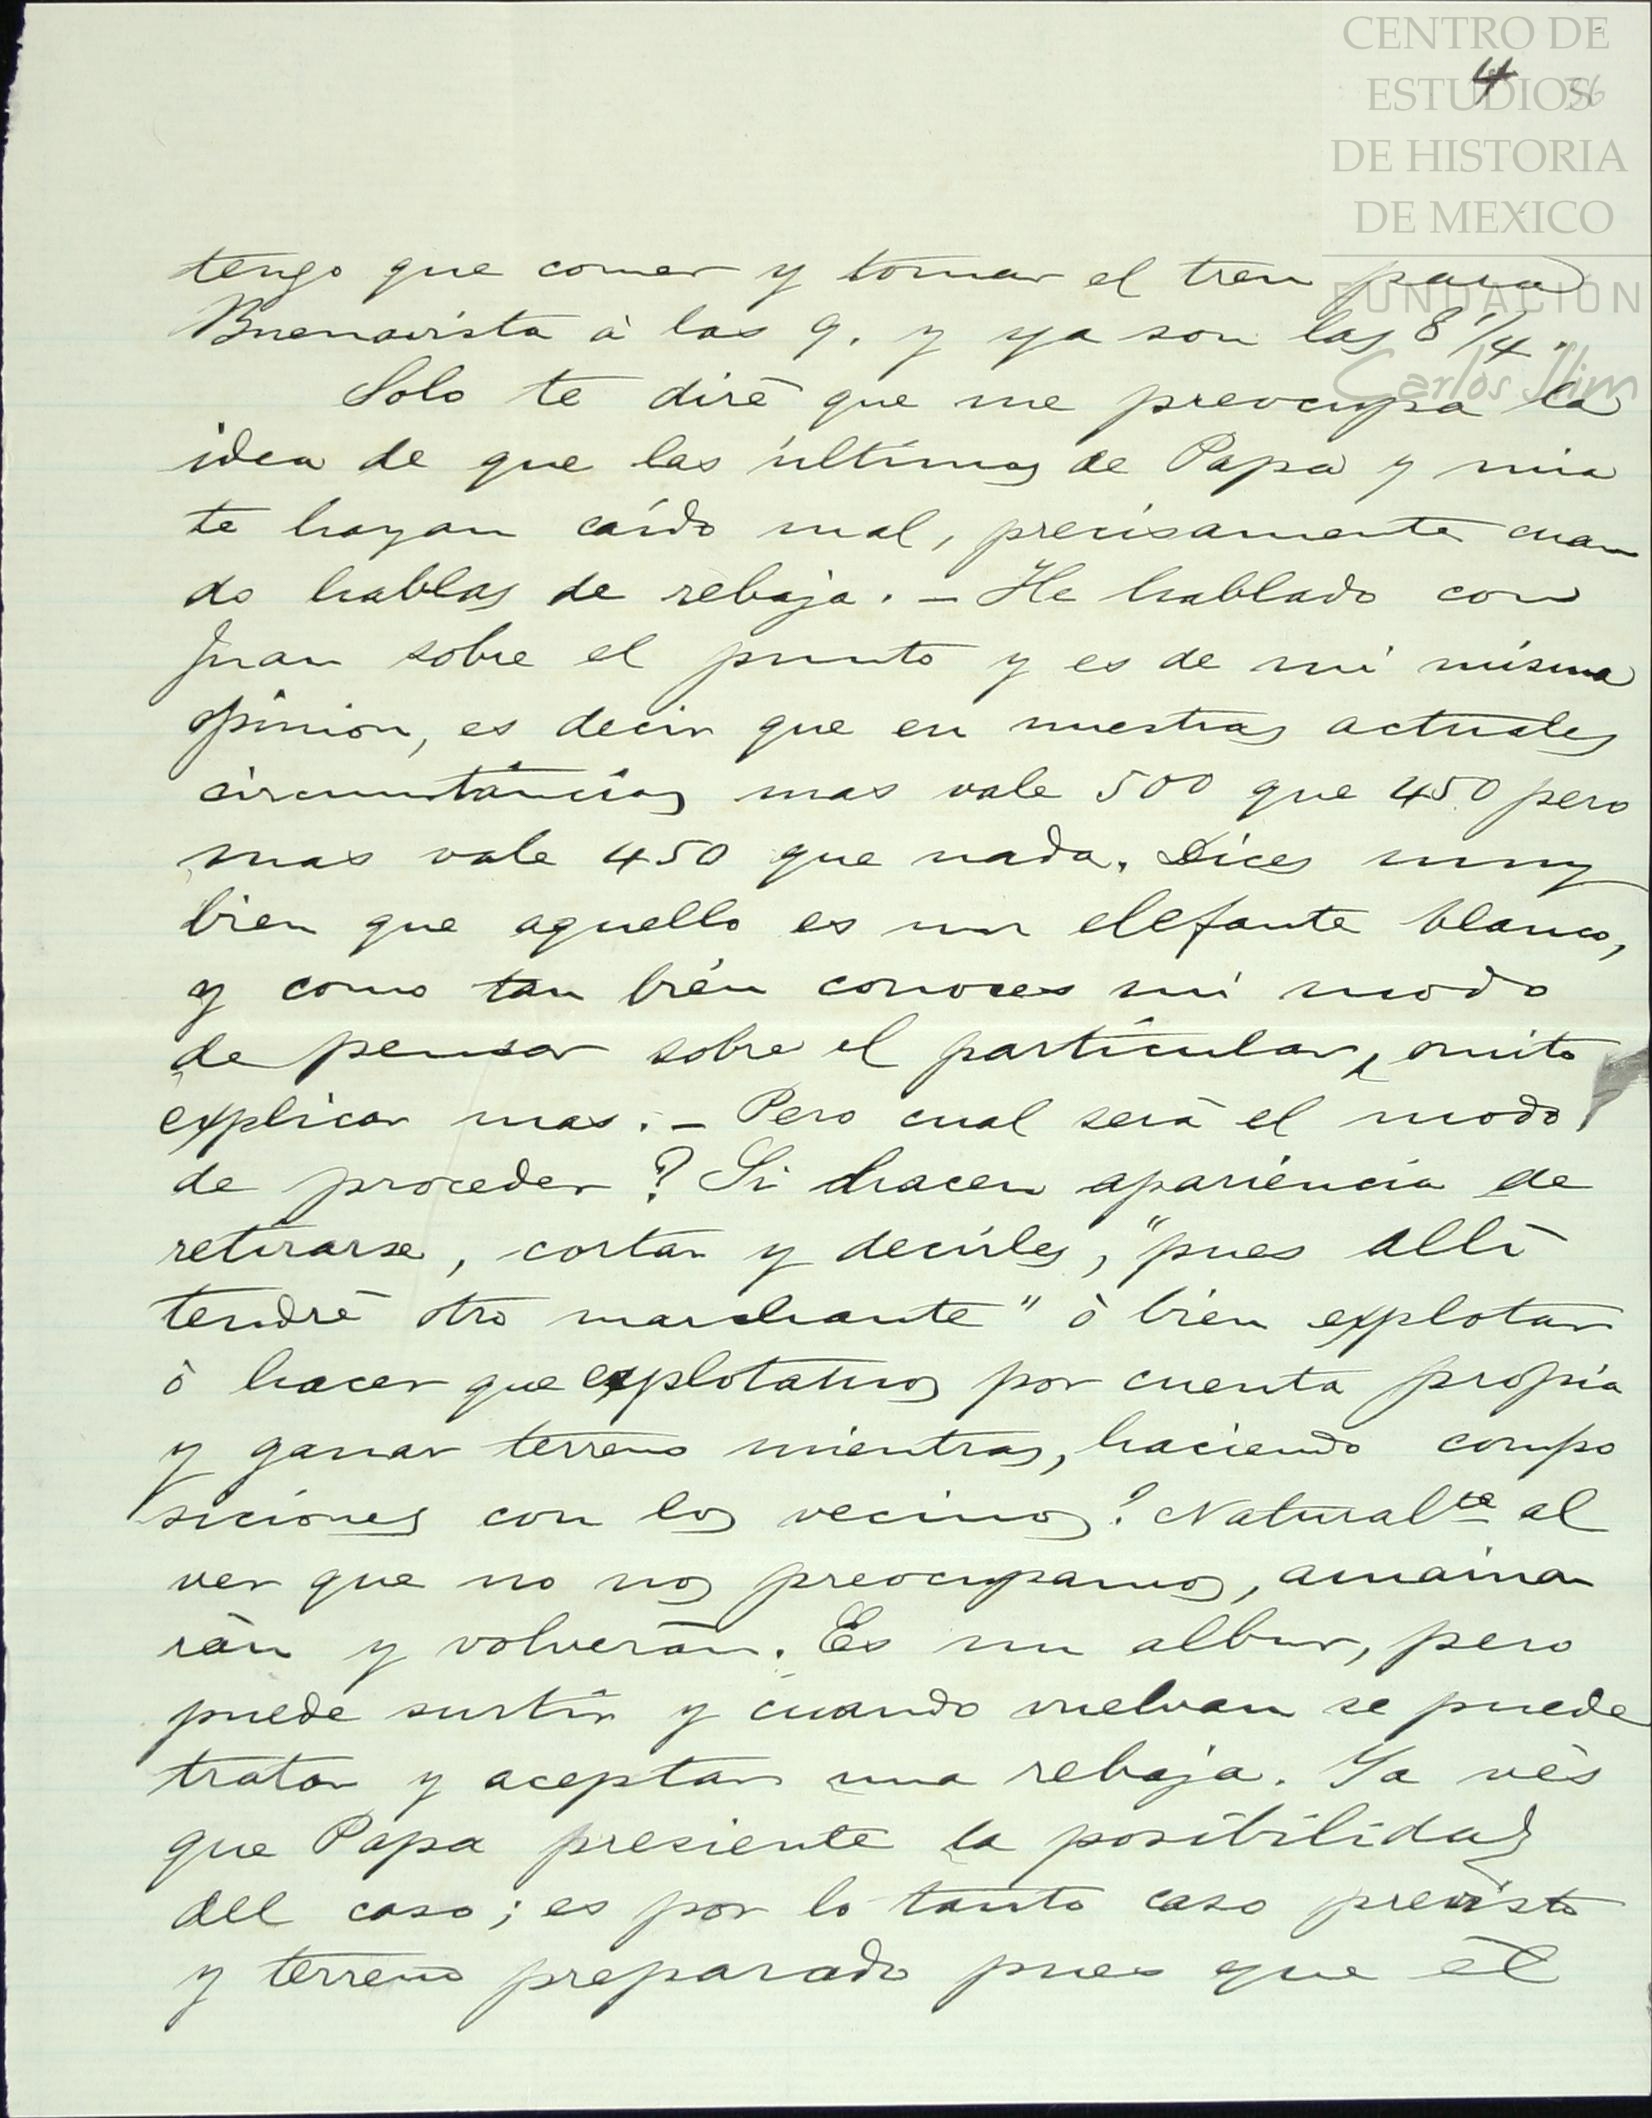 CENTRO DE
ESTUDIOS
DE HISTORIA
DE MEXICO
FUNDACIÓN
Carlos Slim
4
36
tengo que comer y tomar el tren para
Buenavista à las 9. y ya son las 8 1/4.
Solo te diré que me preocupa la
idea de que las últimas de Papa y mia
te hayan caído mal, precisamente cuan
do hablas de rebaja. - He hablado con
Juan sobre el punto y es de mi misma
opinion, es decir que en nuestras actuales
circunstáncias mas vale 500 que 450 pero
mas vale 450 que nada. Dices muy
bien que aquello es un elefante blanco,
y como tan bien conoces mi modo
de pensar sobre el particular, omito
explicar mas. - Pero cual será el modo
de proceder? Si hacen apariencia de
retirarse, cortar y decirles, "pues alli
tendré otro marchante" ò bien explotar
ò hacer que explotamos por cuenta propia
y ganar terreno mientras, haciendo compo
siciones con los vecinos? Natural.te al
ver que no nos preocupamos, amaina
rán y volverán. Es un albur, pero
puede surtir y cuando vuelvan se puede
tratar y aceptar una rebaja. Ya vés
que Papa presiente la posibilidad
del caso; es por lo tanto caso previsto
y terreno preparado pues que él